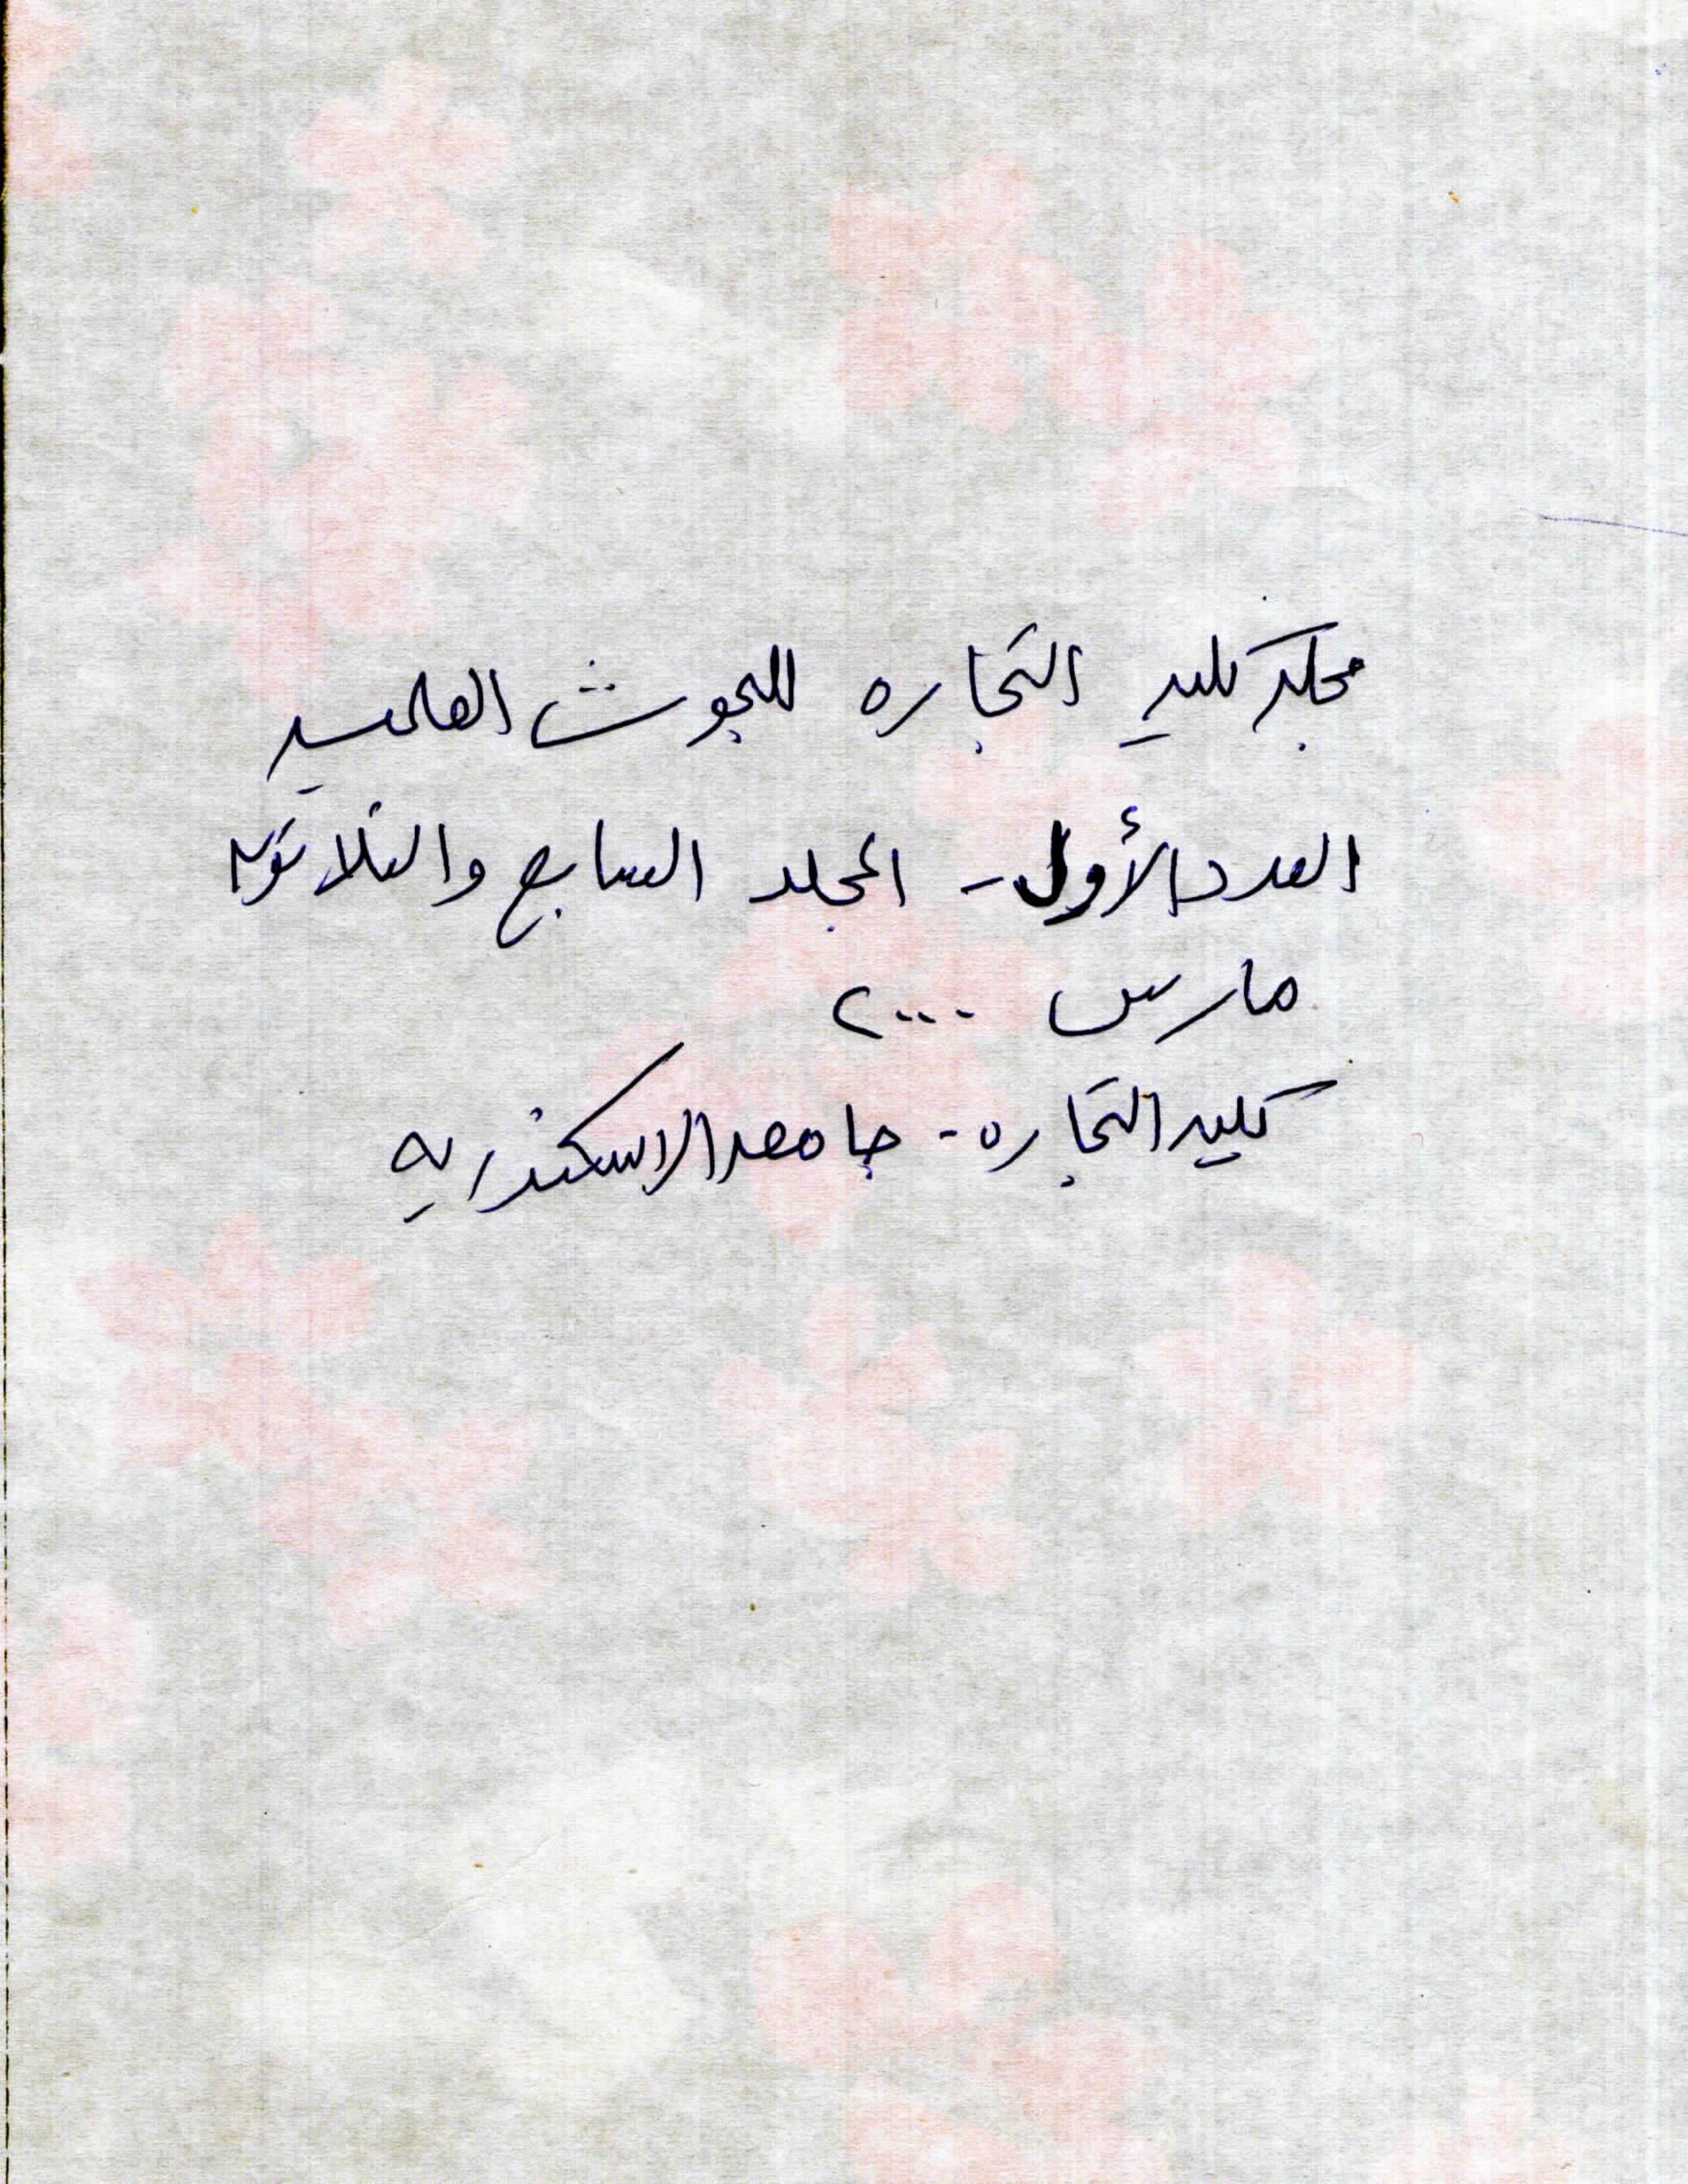 مجلة كلية التجاره للبحوث العلميه
العدد الأول - المجلد السابع والثلاثون
مارس ٢٠٠٠
كلية التجاره - جامعة الاسكندريه